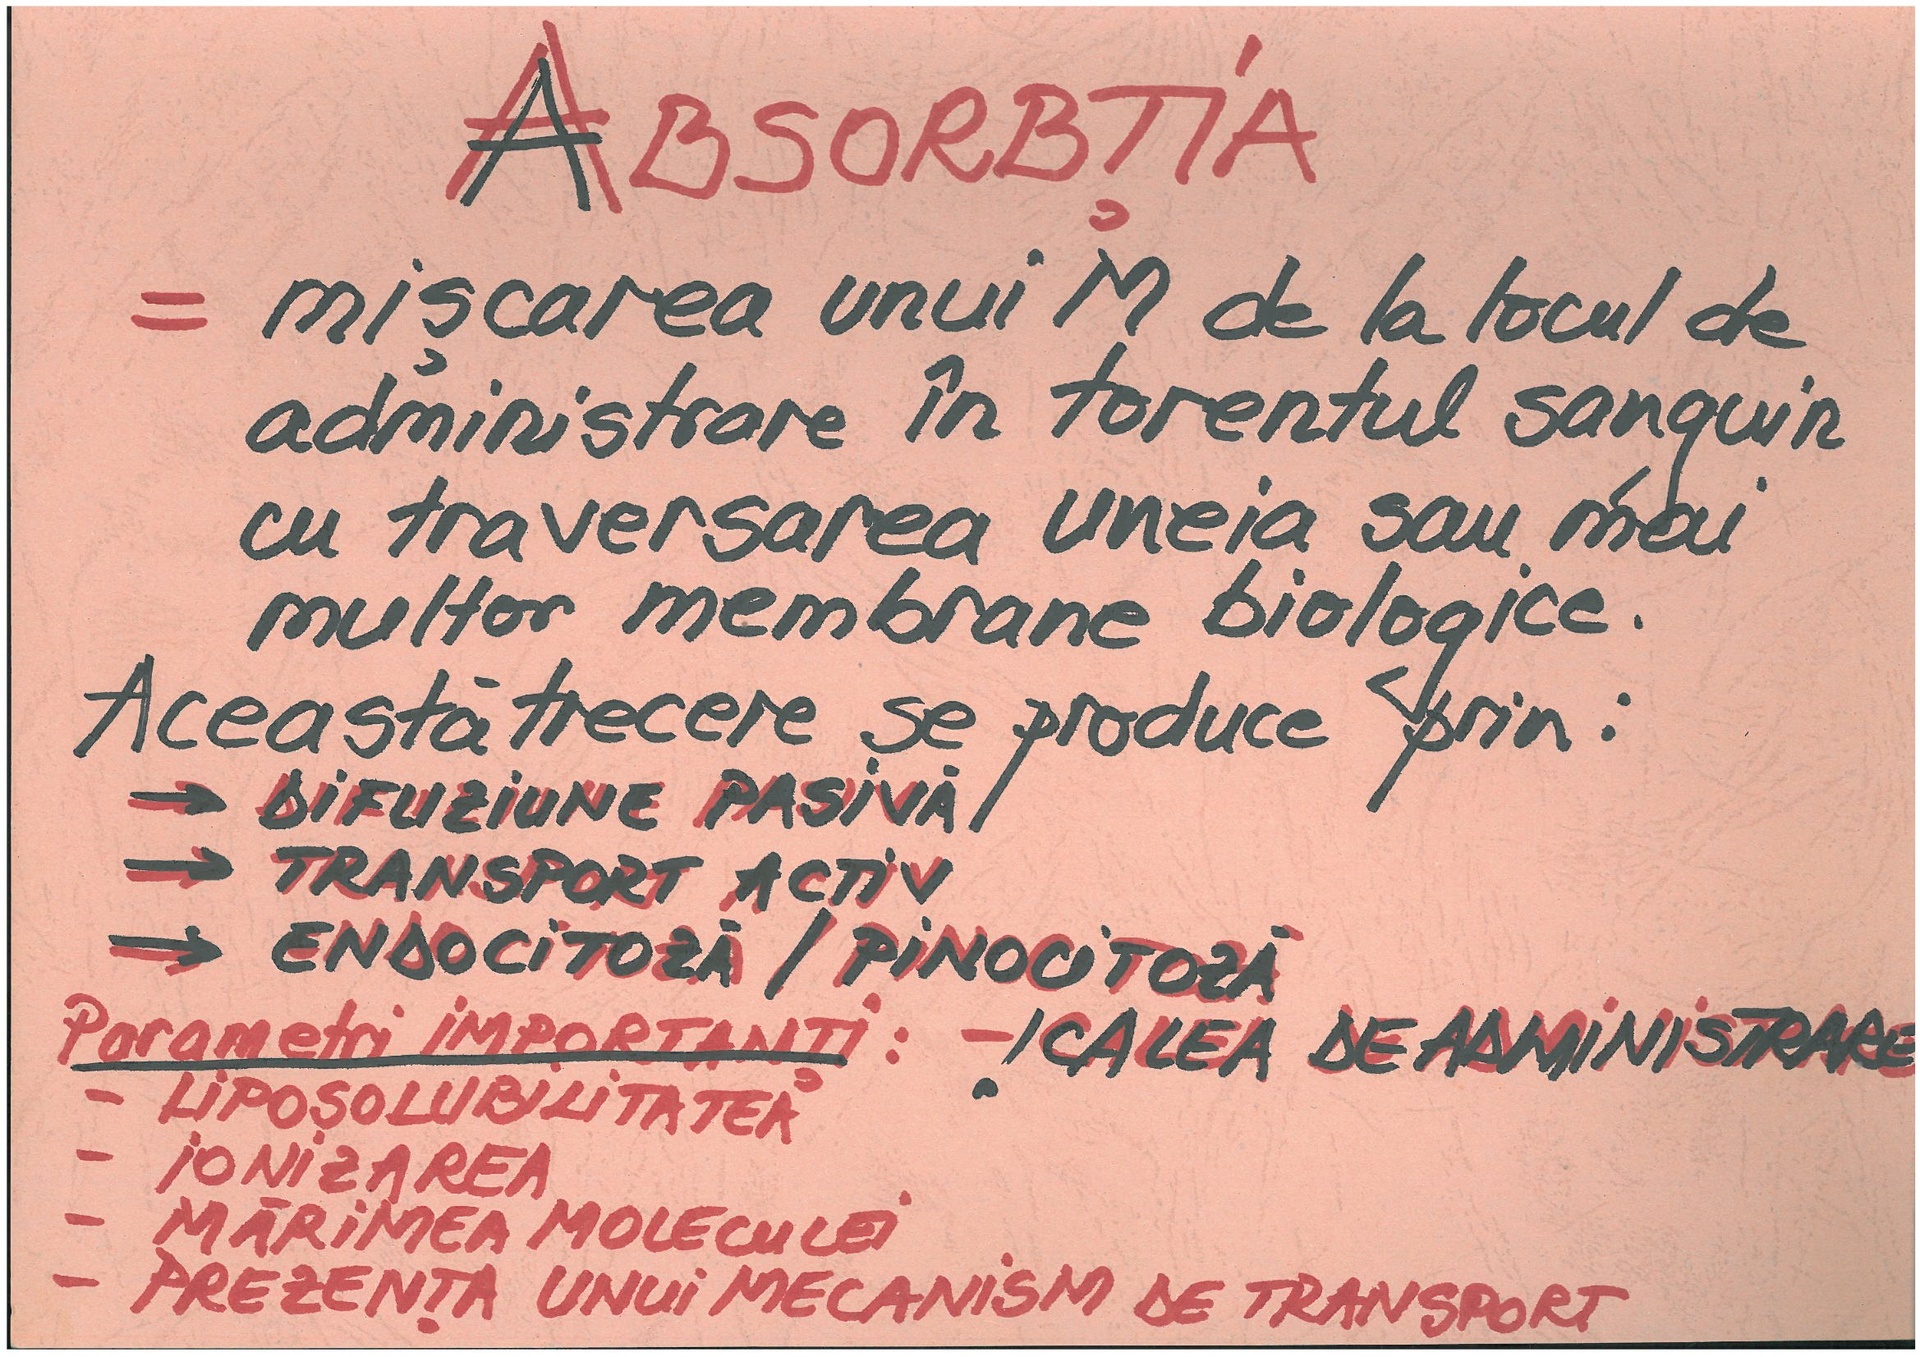 ABSORBȚIA
= mișcarea unui M de la locul de
administrare în torentul sanguin
cu traversarea uneia sau mai
multor membrane biologice.
Această trecere se produce prin:
→ DIFUZIUNE PASIVĂ
→ TRANSPORT ACTIV
→ ENDOCITOZĂ / PINOCITOZĂ
Parametri IMPORTANȚI: - ! CALEA DE ADMINISTRARE
- LIPOSOLUBILITATEA
- IONIZAREA
- MĂRIMEA MOLECULEI
- PREZENȚA UNUI MECANISM DE TRANSPORT